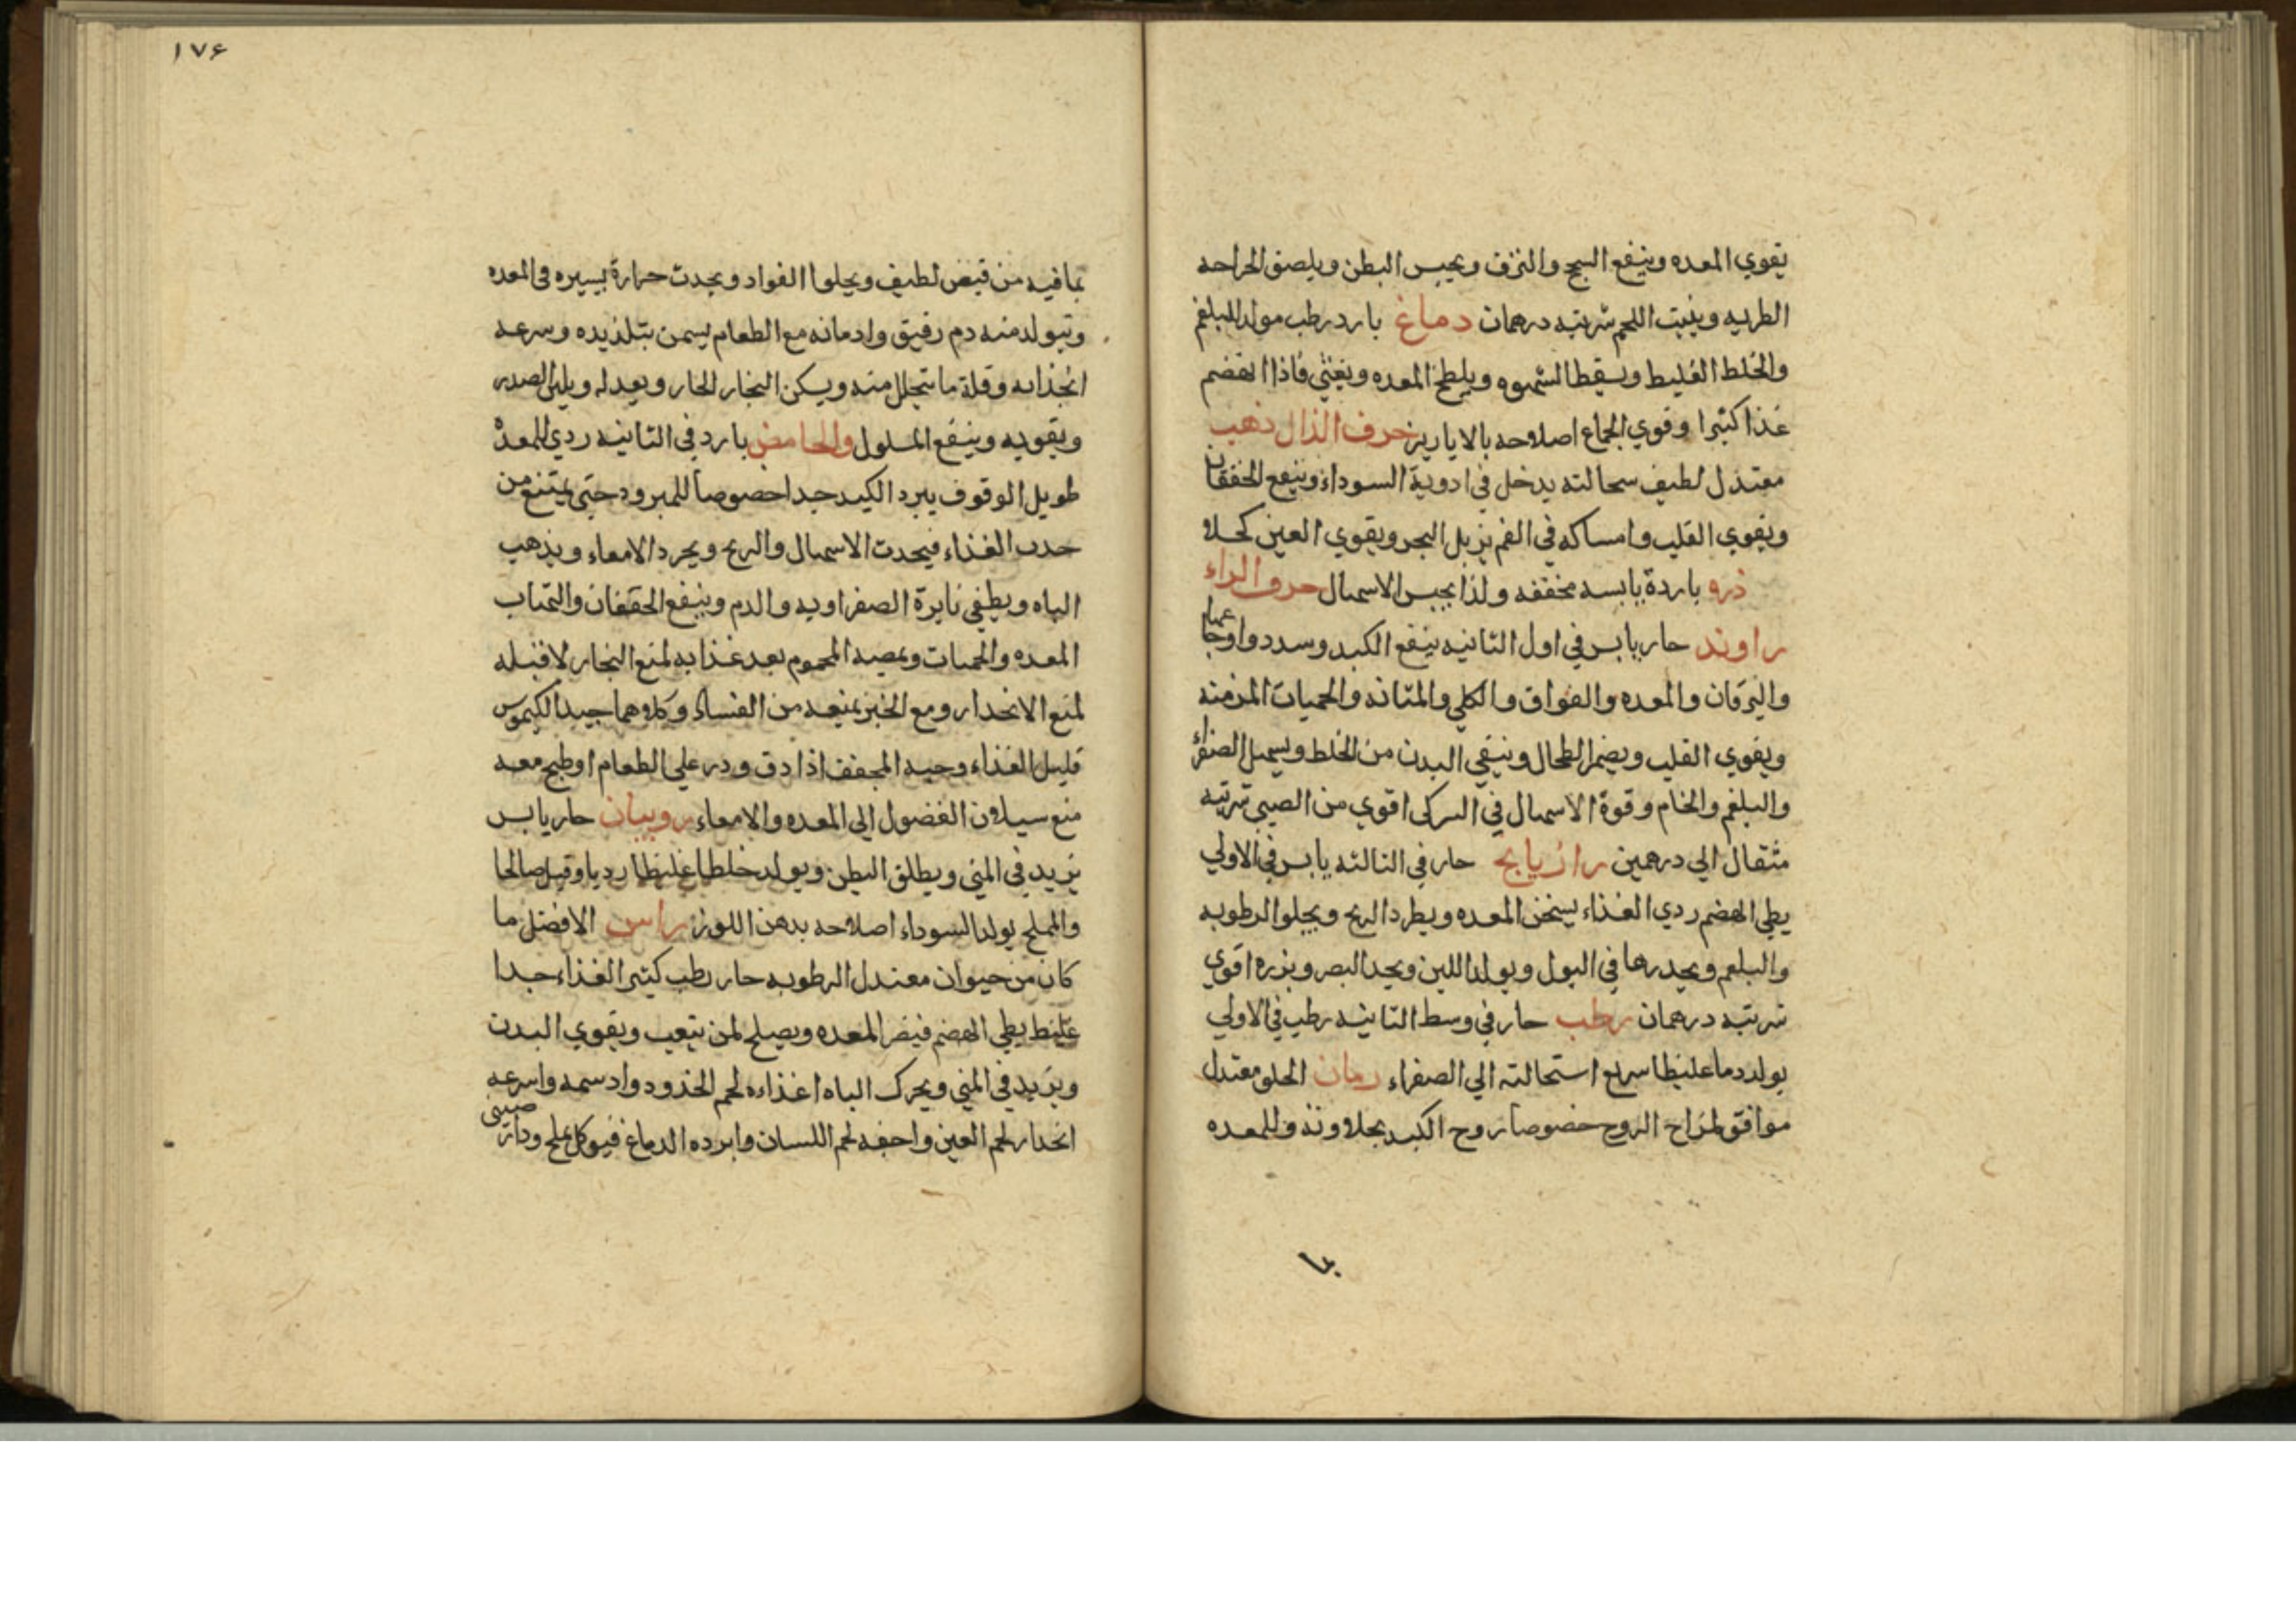 يقوي المعده وينفع السحج والنزف ويحبس البطن ويلصق الجراحه
الطريه وينبت اللحم شربته درهمان دماغ بارد رطب مولد للبلغم
والخلط الغليط ويسقط الشهوه ويلطخ المعده ويغثي فاذا انهضم
غذا كثيرا وقوي الجماع اصلاحه بالابازير حرف الذال ذهب
معتدل لطيف سحالته يدخل في ادوية السوداء وينفع الخفقان
ويقوي القلب وامساكه في الفم يزيل البخر ويقوي العين كحلا
ذره باردة يابسه مجففه ولذا يحبس الاسهال حرف الراء
راوند حار يابس في اول الثانيه ينفع الكبد وسددواوجاعها
واليرقان والمعده والفواق والكلي والمثانه والحميات المزمنه
ويقوي القلب ويضمر الطحال وينقي البدن من الخلط ويسهل الصفراء
والبلغم والخام وقوة الاسهال في التركى اقوي من الصيني شربته
مثقال الي درهمين رازيانج حار في الثالثه يابس في الاولي
بطي الهضم ردي الغذاء يسخن المعده ويطرد الريح ويجلو الرطوبه
والبلغم ويحدرها في البول ويولد اللبن ويحد البصر وبزره اقوي
شربته درهمان رطب حار في وسط الثانيه رطب في الاولي
يولد دما غليظا سريع استحالته الي الصفراء رمان الحلو معتدل
موافق لمزاج الروح خصوصا روح الكبد بحلاوته وللمعده
بما
١٧۶
بما فيه من قبض لطيف ويجلوا الفواد ويحدث حرارة يسيره في المعده
ويتولد منه دم رقيق وادمانه مع الطعام يسمن بتلذيذه وسرعه
انجذابه وقلة ما يتحلل منه ويسكن البخار الحار ويعدله ويلين الصدر
ويقويه وينفع المسلول والحامض بارد في الثانيه ردي للمعدة
طويل الوقوف يبرد الكبد جدا خصوصا للمبرود حتى يمتنع من
جذب الغذاء فيحدث الاسهال والريح ويجرد الامعاء ويذهب
الباه ويطفي نايرة الصفراويه والدم وينفع الخفقان والتهاب
المعده والحميات ويمصه المحموم بعد غذايه لمنع البخار لا قبله
لمنع الانحدار ومع الخبز يمنعه من الفساد وكلاهما جيد الكيموس
قليل الغذاء وحبه المجفف اذا دق وذر علي الطعام او طبخ معه
منع سيلان الفضول الي المعده والامعاء روبيان حار يابس
يزيد في المني ويطلق البطن ويولد خلطا غليظا رديا وقيل صالحا
والمملح يولد السوداء اصلاحه بدهن اللوز راس الافضل ما
كان من حيوان معتدل الرطوبه حار رطب كثير الغذاء جدا
غليظ بطي الهضم فيضر المعده ويصلح لمن يتعب ويقوي البدن
ويزيد في المني ويحرك الباه اغذاه لحم الخدود وادسمه واسرعه
انحدار لحم العين واخفه لحم اللسان وابرده الدماغ فيوكل بملح ودار صيني